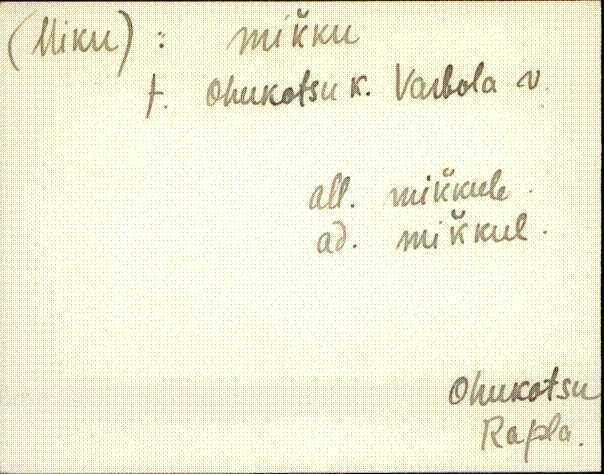 (Miku) : mik̆ku
t. Ohukotsu k. Varbola v.
all. mik̆kule.
ad. mik̆kul.
Ohukotsu
Rapla.